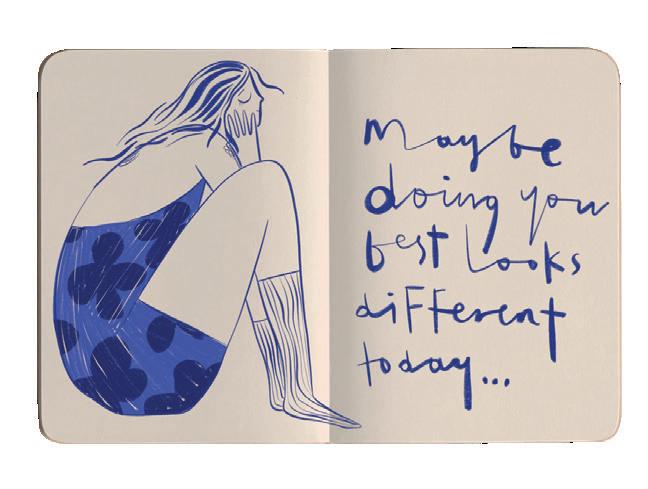 Maybe
doing you
best looks
different
today...